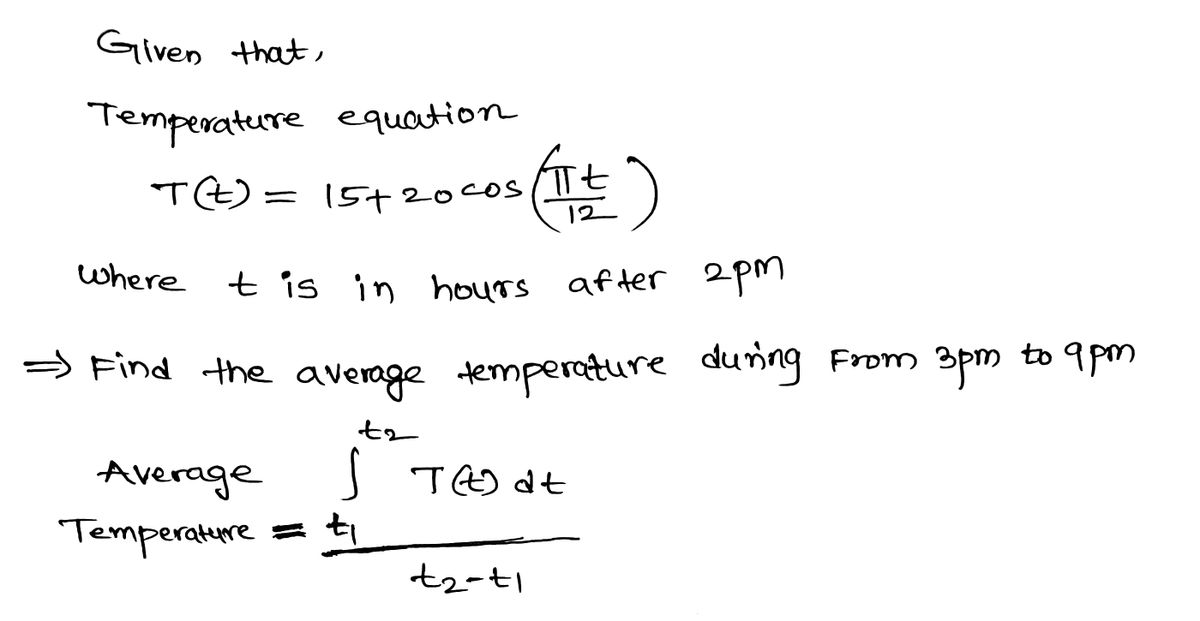 Given that,
Temperature equation
T(t) = 15+20cos(πt/12)
where t is in hours after 2pm
⇒ Find the average temperature during From 3pm to 9pm
Average Temperature = ∫_{t1}^{t2} T(t) dt / (t2-t1)